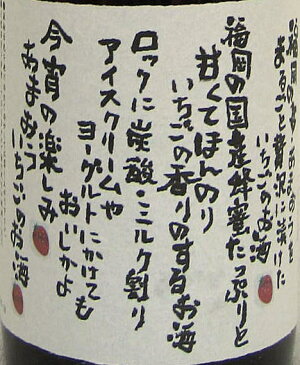 福岡の
まるごと贅沢に漬けた
いちごのお酒
福岡の国産蜂蜜たっぷりと
甘くてほんのり
いちごの香りのするお酒
ロックに炭酸・ミルク割り
アイスクリームや
ヨーグルトにかけても
おいしかよ
今宵の楽しみ
あまおう
いちごのお酒